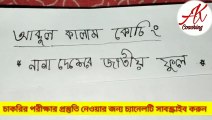 AK
Coaching
আবুল কালাম কোচিং
* নানা দেশের জাতীয় ফুল *
চাকরির পরীক্ষার প্রস্তুতি নেওয়ার জন্য চ্যানেলটি সাবস্ক্রাইব করুন